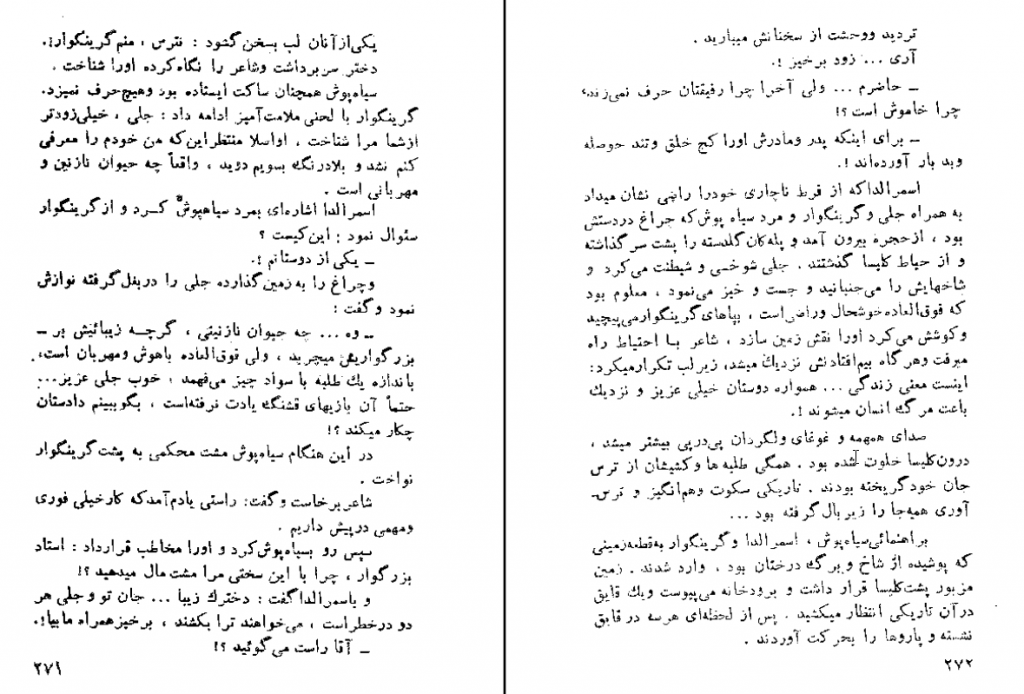 یکی‌از‌آنان لب بسخن‌گشود : نترس ، منم‌گرینگوار!.
دختر سربرداشت وشاعر را نگاه‌کرده اورا شناخت .
سیاه‌پوش همچنان ساکت ایستاده بود وهیچ‌حرف نمیزد.
گرینگوار با لحنی ملامت‌آمیز ادامه داد : جلی ، خیلی‌زودتر
ازشما مرا شناخت ، اواصلا منتظراین‌که من خودم را معرفی
کنم نشد و بلادرنگ بسویم دوید ، واقعاً چه حیوان نازنین و
مهربانی است .
اسمرالدا اشاره‌ای بمرد سیاهپوش کرد و ازگرینگوار
سئوال نمود : این‌کیست ؟
ــ یکی از دوستانم !.
وچراغ را به زمین‌گذارده جلی را دربغل‌گرفته نوازش
نمود وگفت :
ــ وه ... چه حیوان نازنینی ، گرچه زیبائیش بر ــ
بزرگواریش میچربد ، ولی فوق‌العاده باهوش ومهربان است،
باندازه یك طلبه با سواد چیز می‌فهمد ، خوب جلی عزیز...
حتماً آن بازیهای قشنگ یادت نرفته‌است ، بگوببینم دادستان
چکار میکند ؟!
در این هنگام سیاه‌پوش مشت محکمی به پشت‌گرینگوار
نواخت .
شاعربرخاست وگفت: راستی یادم‌آمدکه کارخیلی فوری
ومهمی درپیش داریم .
سپس رو بسیاه‌پوش‌کرد و اورا مخاطب قرارداد : استاد
بزرگوار ، چرا با این سختی مرا مشت‌مال میدهید ؟!
و باسمرالداگفت : دخترك زیبا ... جان تو وجلی هر
دو درخطراست ، می‌خواهند ترا بکشند ، برخیزهمراه ما بیا!.
ــ آقا راست می‌گوئید ؟!
۲۷۱
تردید ووحشت از سخنانش میبارید .
آری ... زود برخیز !.
ــ حاضرم ... ولی آخرا چرا رفیقتان حرف نمی‌زند،
چرا خاموش است ؟!
ــ برای اینکه پدر ومادرش اورا کج خلق وتند حوصله
وبد بار آورده‌اند !.
اسمرالداکه از فرط ناچاری خودرا راضی نشان میداد
به همراه جلی وگرینگوار و مرد سیاه پوش‌که چراغ دردستش
بود ، ازحجره بیرون آمد و پله‌کان گلدسته را پشت سرگذاشته
و از حیاط کلیسا گذشتند . جلی شوخی و شیطنت می‌کرد و
شاخهایش را می‌جنبانید و جست و خیز می‌نمود ، معلوم بود
که فوق‌العاده‌خوشحال وراضی‌است ، بپاهای گرینگوارمی‌پیچید
وکوشش می‌کرد اورا نقش زمین سازد ، شاعر بـا احتیاط راه
میرفت وهرگاه بیم‌افتادنش نزدیك میشد، زیرلب تکرارمیکرد:
اینست معنی زندگی ... همواره دوستان خیلی عزیز و نزدیك
باعث مرگ انسان میشوند !.
صدای همهمه و غوغای ولگردان پی‌درپی بیشتر میشد ،
درون‌کلیسا خلوت شده بود . همگی طلبه ها وکشیشان از ترس
جان خودگریخته بودند . تاریکی سکوت وهم‌انگیز و ترس‌ــ
آوری همه‌جا را زیربال‌گرفته بود ...
براهنمائی‌سیاه‌پوش ، اسمرالدا وگرینگوار به‌قطعه‌زمینی
که پوشیده از شاخ وبرگ درختان بود ، وارد شدند . زمین
مزبور پشت‌کلیسا قرار داشت و برودخانه می‌پیوست ویك قایق
درآن تاریکی انتظار میکشید . پس از لحظه‌ای هرسه درقایق
نشسته و پاروها را بحرکت آوردند .
۲۷۲